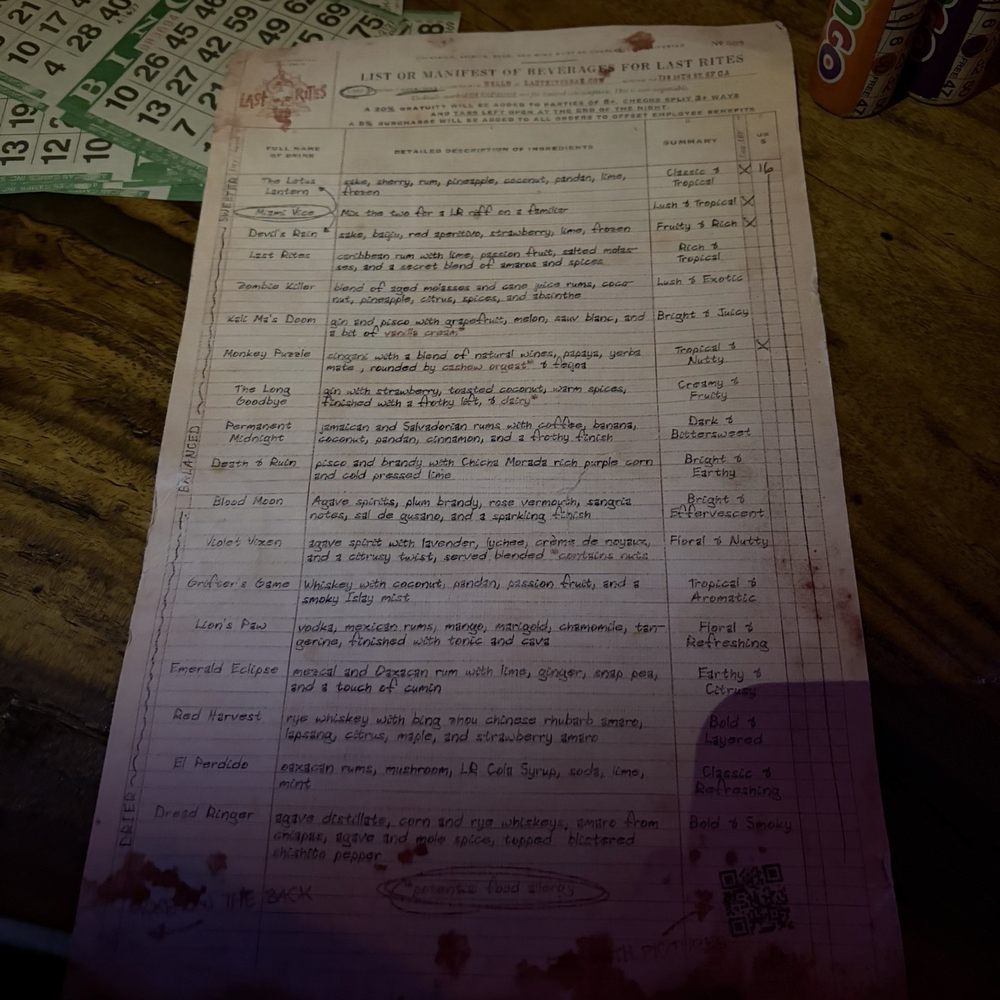 BINGO
BINGO
FREE 47
LAST RITES
LIST OR MANIFEST OF BEVERAGES FOR LAST RITES
A 20% GRATUITY WILL BE ADDED TO PARTIES OF 6+, CHECKS SPLIT 3+ WAYS
AND TABS LEFT OPEN AT THE END OF THE NIGHT.
A 5% SURCHARGE WILL BE ADDED TO ALL ORDERS TO OFFSET EMPLOYEE BENEFITS
FULL NAME OF DRINK
DETAILED DESCRIPTION OF INGREDIENTS
SUMMARY
US $
SWEETER
The Lotus Lantern
sake, sherry, rum, pineapple, coconut, pandan, lime,
frozen
Classic & Tropical
X 16
Miami Vice
Mix the two for a LR riff on a familiar
Lush & Tropical
X
Devil's Rain
sake, baiju, red aperitivo, strawberry, lime, frozen
Fruity & Rich
X
Last Rites
caribbean rum with lime, passion fruit, salted molas-
ses, and a secret blend of amaros and spices
Rich & Tropical
Zombie Killer
blend of aged molasses and cane juice rums, coco-
nut, pineapple, citrus, spices, and absinthe
Lush & Exotic
Kali Ma's Doom
gin and pisco with grapefruit, melon, sauv blanc, and
a bit of vanilla cream*
Bright & Juicy
Monkey Puzzle
singani with a blend of natural wines, papaya, yerba
mate, rounded by cashew orgeat* & feijoa
Tropical & Nutty
X
The Long Goodbye
gin with strawberry, toasted coconut, warm spices,
finished with a frothy loft, & dairy*
Creamy & Fruity
BALANCED
Permanent Midnight
jamaican and Salvadorian rums with coffee, banana,
coconut, pandan, cinnamon, and a frothy finish
Dark & Bittersweet
Death & Ruin
pisco and brandy with Chicha Morada rich purple corn
and cold pressed lime
Bright & Earthy
Blood Moon
Agave spirits, plum brandy, rose vermouth, sangria
notes, sal de gusano, and a sparkling finish
Bright & Effervescent
Violet Vixen
agave spirit with lavender, lychee, crème de noyaux,
and a citrusy twist, served blended *contains nuts
Floral & Nutty
Grifter's Game
Whiskey with coconut, pandan, passion fruit, and a
smoky Islay mist
Tropical & Aromatic
Lion's Paw
vodka, mexican rums, mango, marigold, chamomile, tan-
gerine, finished with tonic and cava
Floral & Refreshing
Emerald Eclipse
mezcal and Oaxacan rum with lime, ginger, snap pea,
and a touch of cumin
Earthy & Citrusy
Red Harvest
rye whiskey with bing zhou chinese rhubarb amaro,
lapsang, citrus, maple, and strawberry amaro
Bold & Layered
El Perdido
oaxacan rums, mushroom, LR Cola Syrup, soda, lime,
mint
Classic & Refreshing
DRIER
Dread Ringer
agave distillate, corn and rye whiskeys, amaro from
chiapas, agave and mole spice, topped blistered
shishito pepper
Bold & Smoky
*potential food allergy
THE BACK